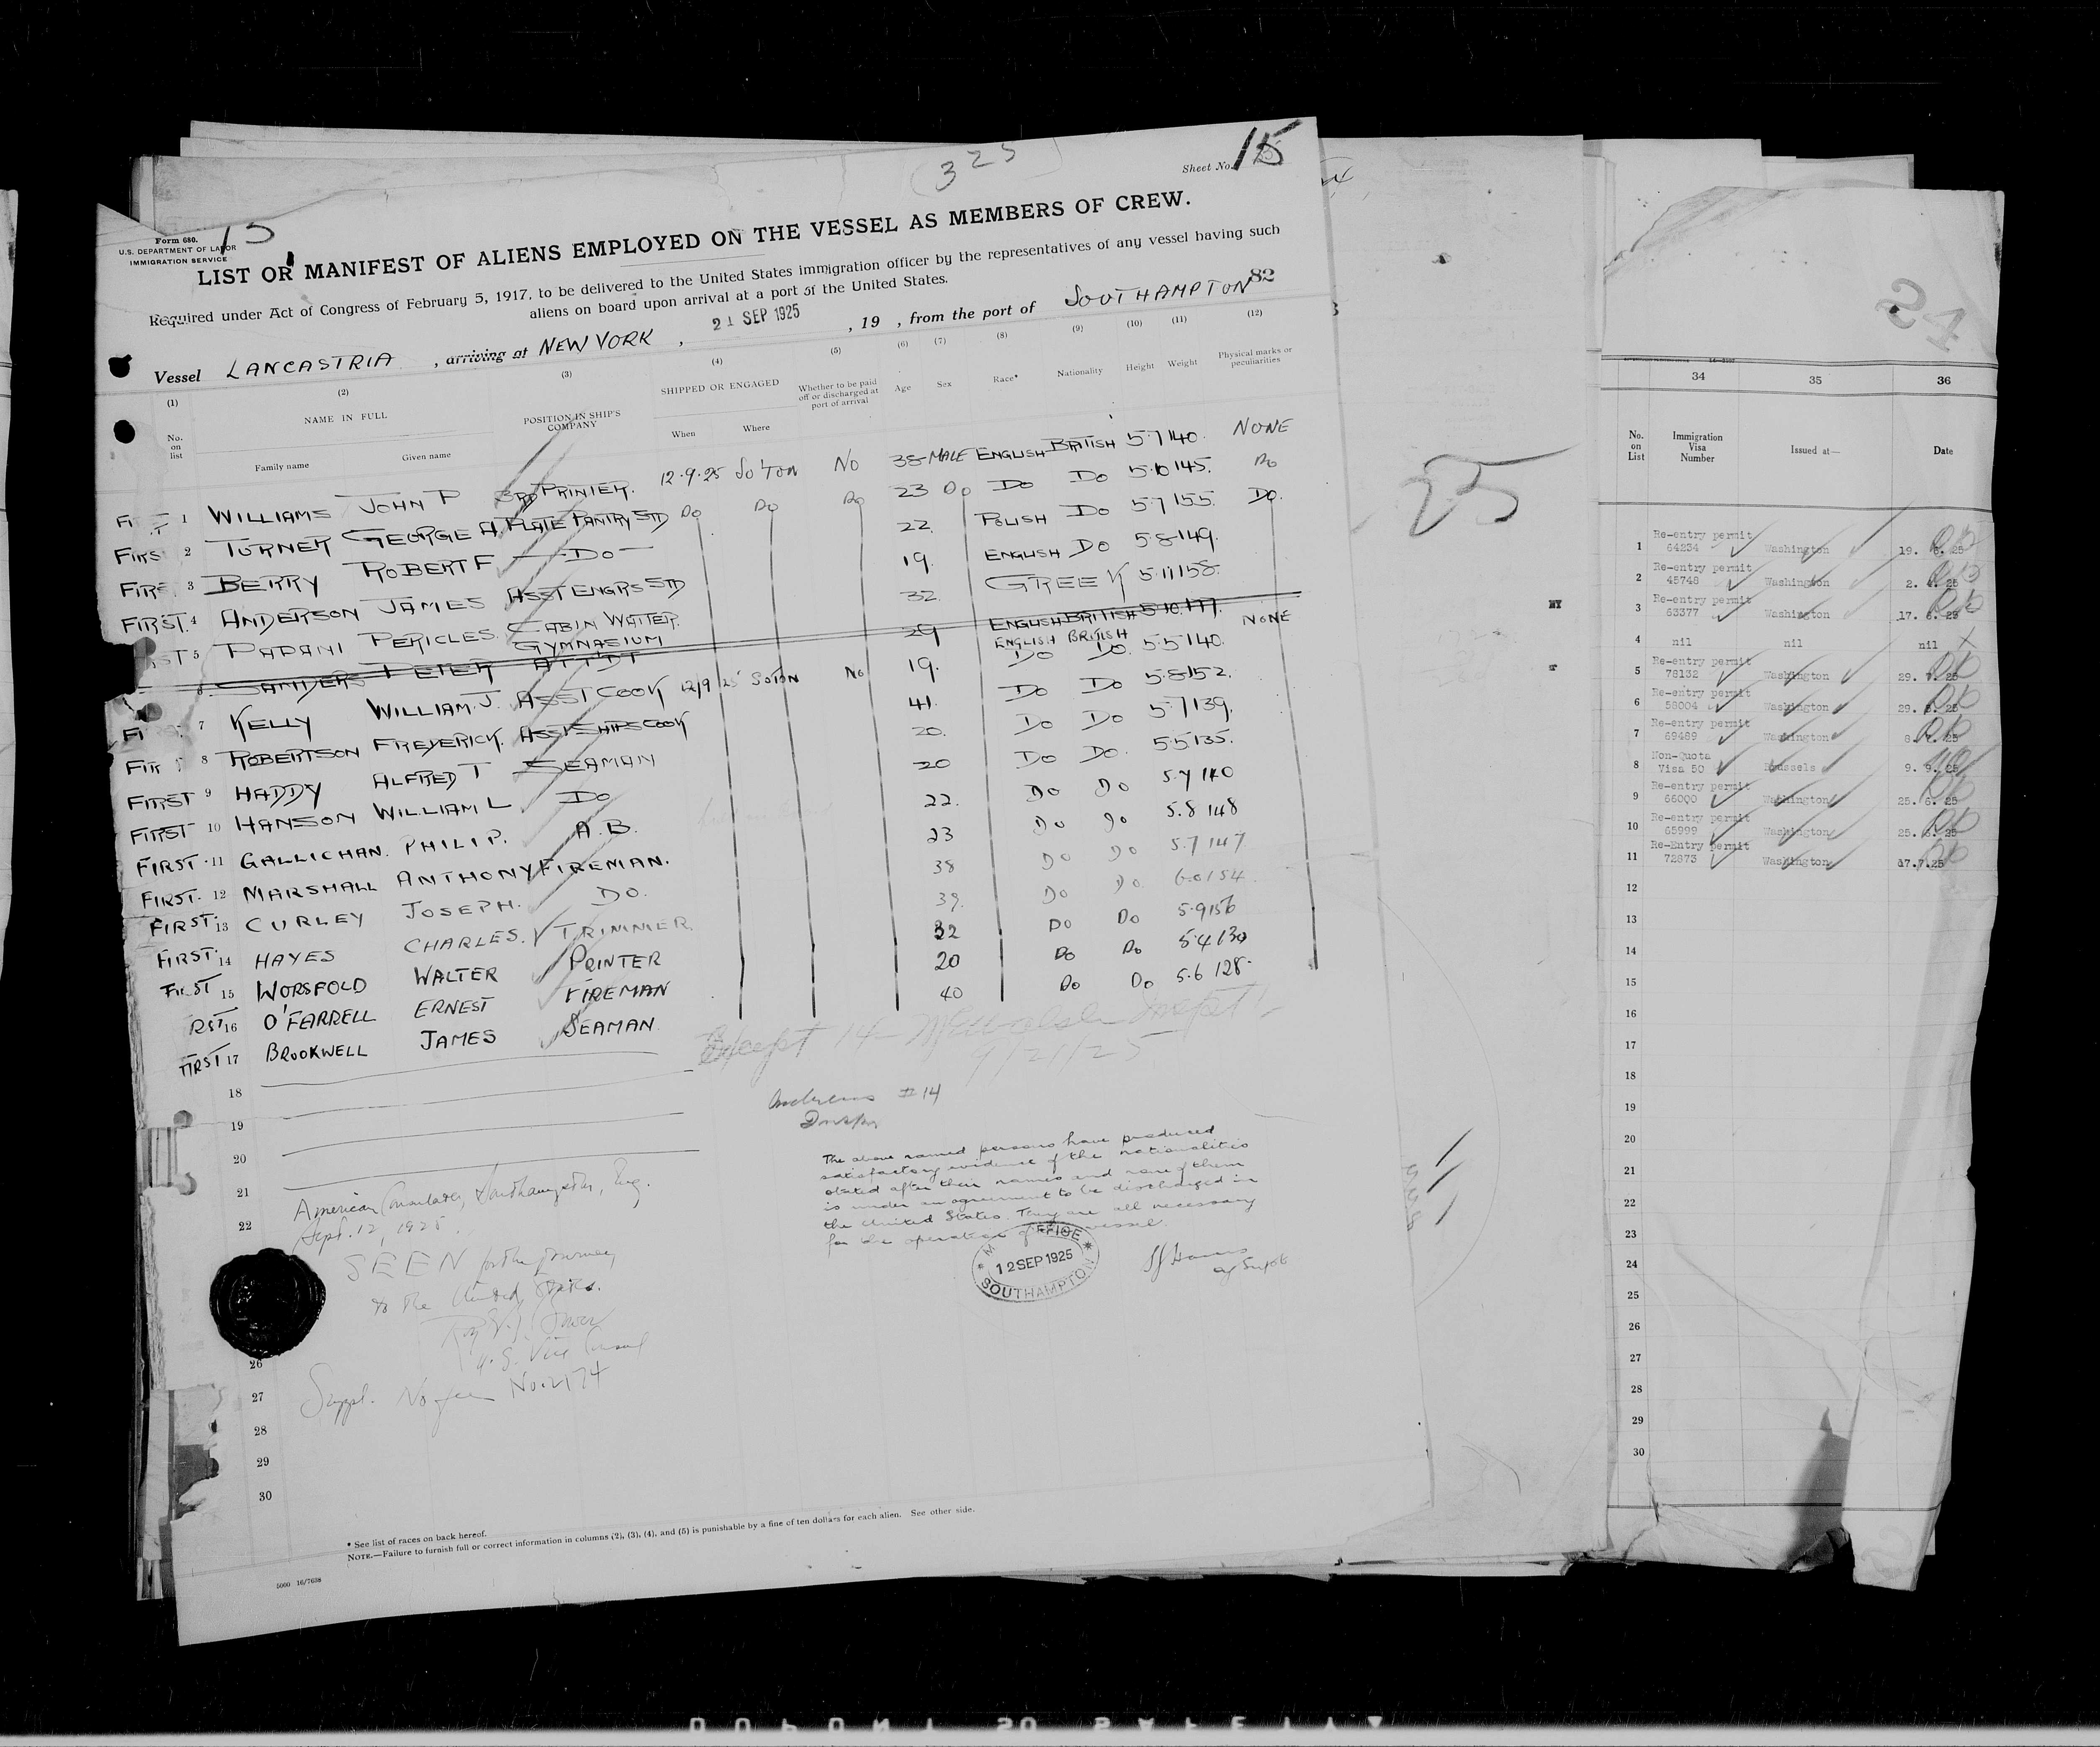 325
Sheet No. 15
15
Form 680.
U.S. DEPARTMENT OF LABOR
IMMIGRATION SERVICE
LIST OR MANIFEST OF ALIENS EMPLOYED ON THE VESSEL AS MEMBERS OF CREW.
Required under Act of Congress of February 5, 1917, to be delivered to the United States immigration officer by the representatives of any vessel having such
aliens on board upon arrival at a port of the United States.
82
Vessel LANCASTRIA, arriving at NEW YORK, 21 SEP 1925, 19 , from the port of SOUTHAMPTON
(1) (2) (3) (4) (5) (6) (7) (8) (9) (10) (11) (12)
No. on list NAME IN FULL POSITION IN SHIP'S COMPANY SHIPPED OR ENGAGED Whether to be paid off or discharged at port of arrival Age Sex Race* Nationality Height Weight Physical marks or peculiarities
Family name Given name When Where
1 WILLIAMS JOHN P 3RD PRINTER. 12-9-25 SO'TON NO 38 MALE ENGLISH BRITISH 5-7 140. NONE
FIRS 2 TURNER GEORGE A PLATE PANTRY STD DO DO DO 23 DO DO DO 5-10 145. DO
FIRS 3 BERRY ROBERT F —DO— 22. POLISH DO 5-7 155. DO.
FIRST. 4 ANDERSON JAMES ASST ENGRS STD 19. ENGLISH DO 5-8 149.
ST 5 PADANI PERICLES. CABIN WAITER. 32. GREEK 5-11 158.
6 SANDERS PETER GYMNASIUM ATT'DT 29 ENGLISH BRITISH 5-10. 177.
7 KELLY WILLIAM. J. ASST COOK 12/9/25 SOTON NO 19. ENGLISH BRITISH 5-5 140. NONE
FIR T 8 ROBERTSON FREDERICK. ASST SHIPS COOK 41. DO DO 5-8 152.
FIRST 9 HADDY ALFRED T SEAMAN 20. DO DO 5-7 139.
FIRST 10 HANSON WILLIAM L DO 20 DO DO. 5-5 135.
FIRST 11 GALLICHAN. PHILIP. A.B. 22. DO DO 5.7 140
FIRST. 12 MARSHALL ANTHONY FIREMAN. 23 DO DO 5.8 148
FIRST. 13 CURLEY JOSEPH. DO. 38 DO DO 5.7 147
FIRST. 14 HAYES CHARLES. TRIMMER. 39. DO DO. 6.0 154
FIRST 15 WORSFOLD WALTER PRINTER 32 DO DO 5.9 156
RST 16 O'FARRELL ERNEST FIREMAN 20 DO DO 5.4 130
FIRST 17 BROOKWELL JAMES SEAMAN 40 DO DO 5.6 128.
Except 14
9/21/25
18
#14
19
20
21
22
The above named persons have produced
satisfactory evidence of the nationalities
stated after their names and none of them
is under an agreement to be discharged in
the United States. They are all necessary
for the operation of vessel.
OFFICE
12 SEP 1925
SOUTHAMPTON
American Consulate, Southampton, Eng.
Sept. 12, 1925.
SEEN for the journey
to the United States.
U. S. Vice Consul
Suppl. No fee No. 2174
26
27
28
29
30
* See list of races on back hereof.
NOTE.—Failure to furnish full or correct information in columns (2), (3), (4), and (5) is punishable by a fine of ten dollars for each alien. See other side.
5000 16/7638
25
NY
34 35 36
No. on List Immigration Visa Number Issued at— Date
1 Re-entry permit 64234 Washington 19. 6. 25
2 Re-entry permit 45748 Washington 2. 25
3 Re-entry permit 63377 Washington 17. 6. 25
4 nil nil nil
5 Re-entry permit 78132 Washington 29. 25
6 Re-entry permit 58004 Washington 29. 25
7 Re-entry permit 69489 Washington 8. 25
8 Non-Quota Visa 50 Brussels 9. 9. 25
9 Re-entry permit 66000 Washington 25. 6. 25
10 Re-entry permit 65999 Washington 25. 6. 25
11 Re-Entry permit 72873 Washington 17.7.25
12
13
14
15
16
17
18
19
20
21
22
23
24
25
26
27
28
29
30